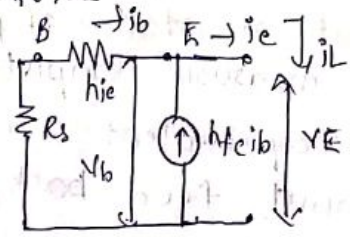 B → ib E → ie ↓ iL
hie
Rs
Vb ↑ hfe ib VE